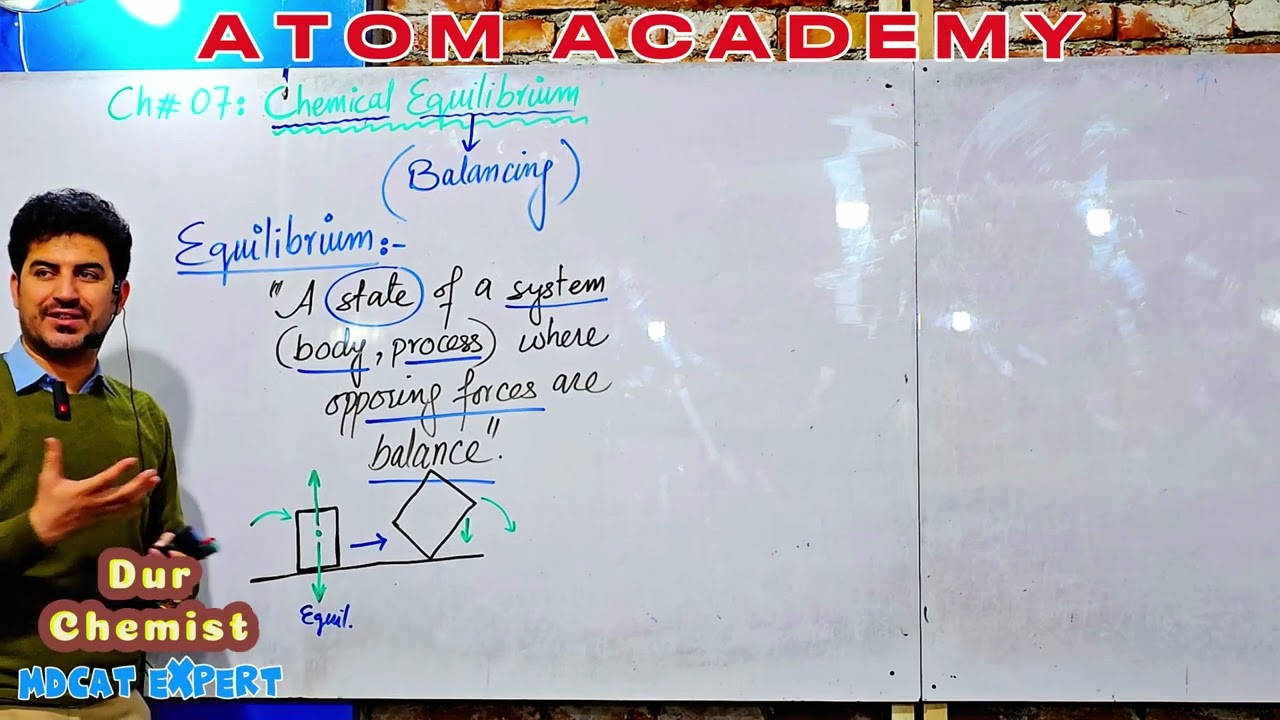 ATOM ACADEMY
Ch# 07: Chemical Equilibrium
(Balancing)
Equilibrium:-
"A state of a system
(body, process) where
opposing forces are
balance".
Equil.
Dur
Chemist
MDCAT EXPERT